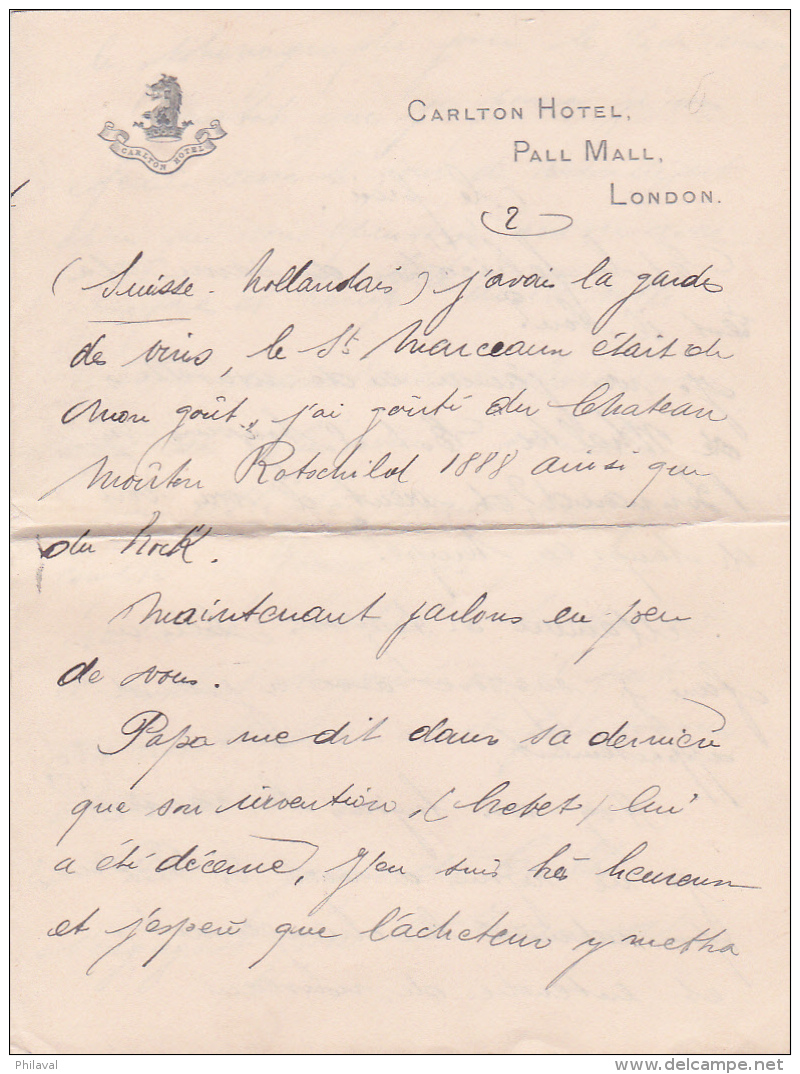 CARLTON HOTEL
CARLTON HOTEL,
PALL MALL,
LONDON.
2
(Suisse-hollandais) j'avais la garde
des vins, le St Marceaux était de
mon goût, j'ai goûté du Chateau
Moûton Rotschild 1888 ainsi que
du Hock.
Maintenant parlons en peu
de vous.
Papa me dit dans sa dernière
que son invention, (brevet) lui
a été décerné, j'en suis très heureux
et j'espère que l'acheteur y mettra
Philaval
delcampe.net